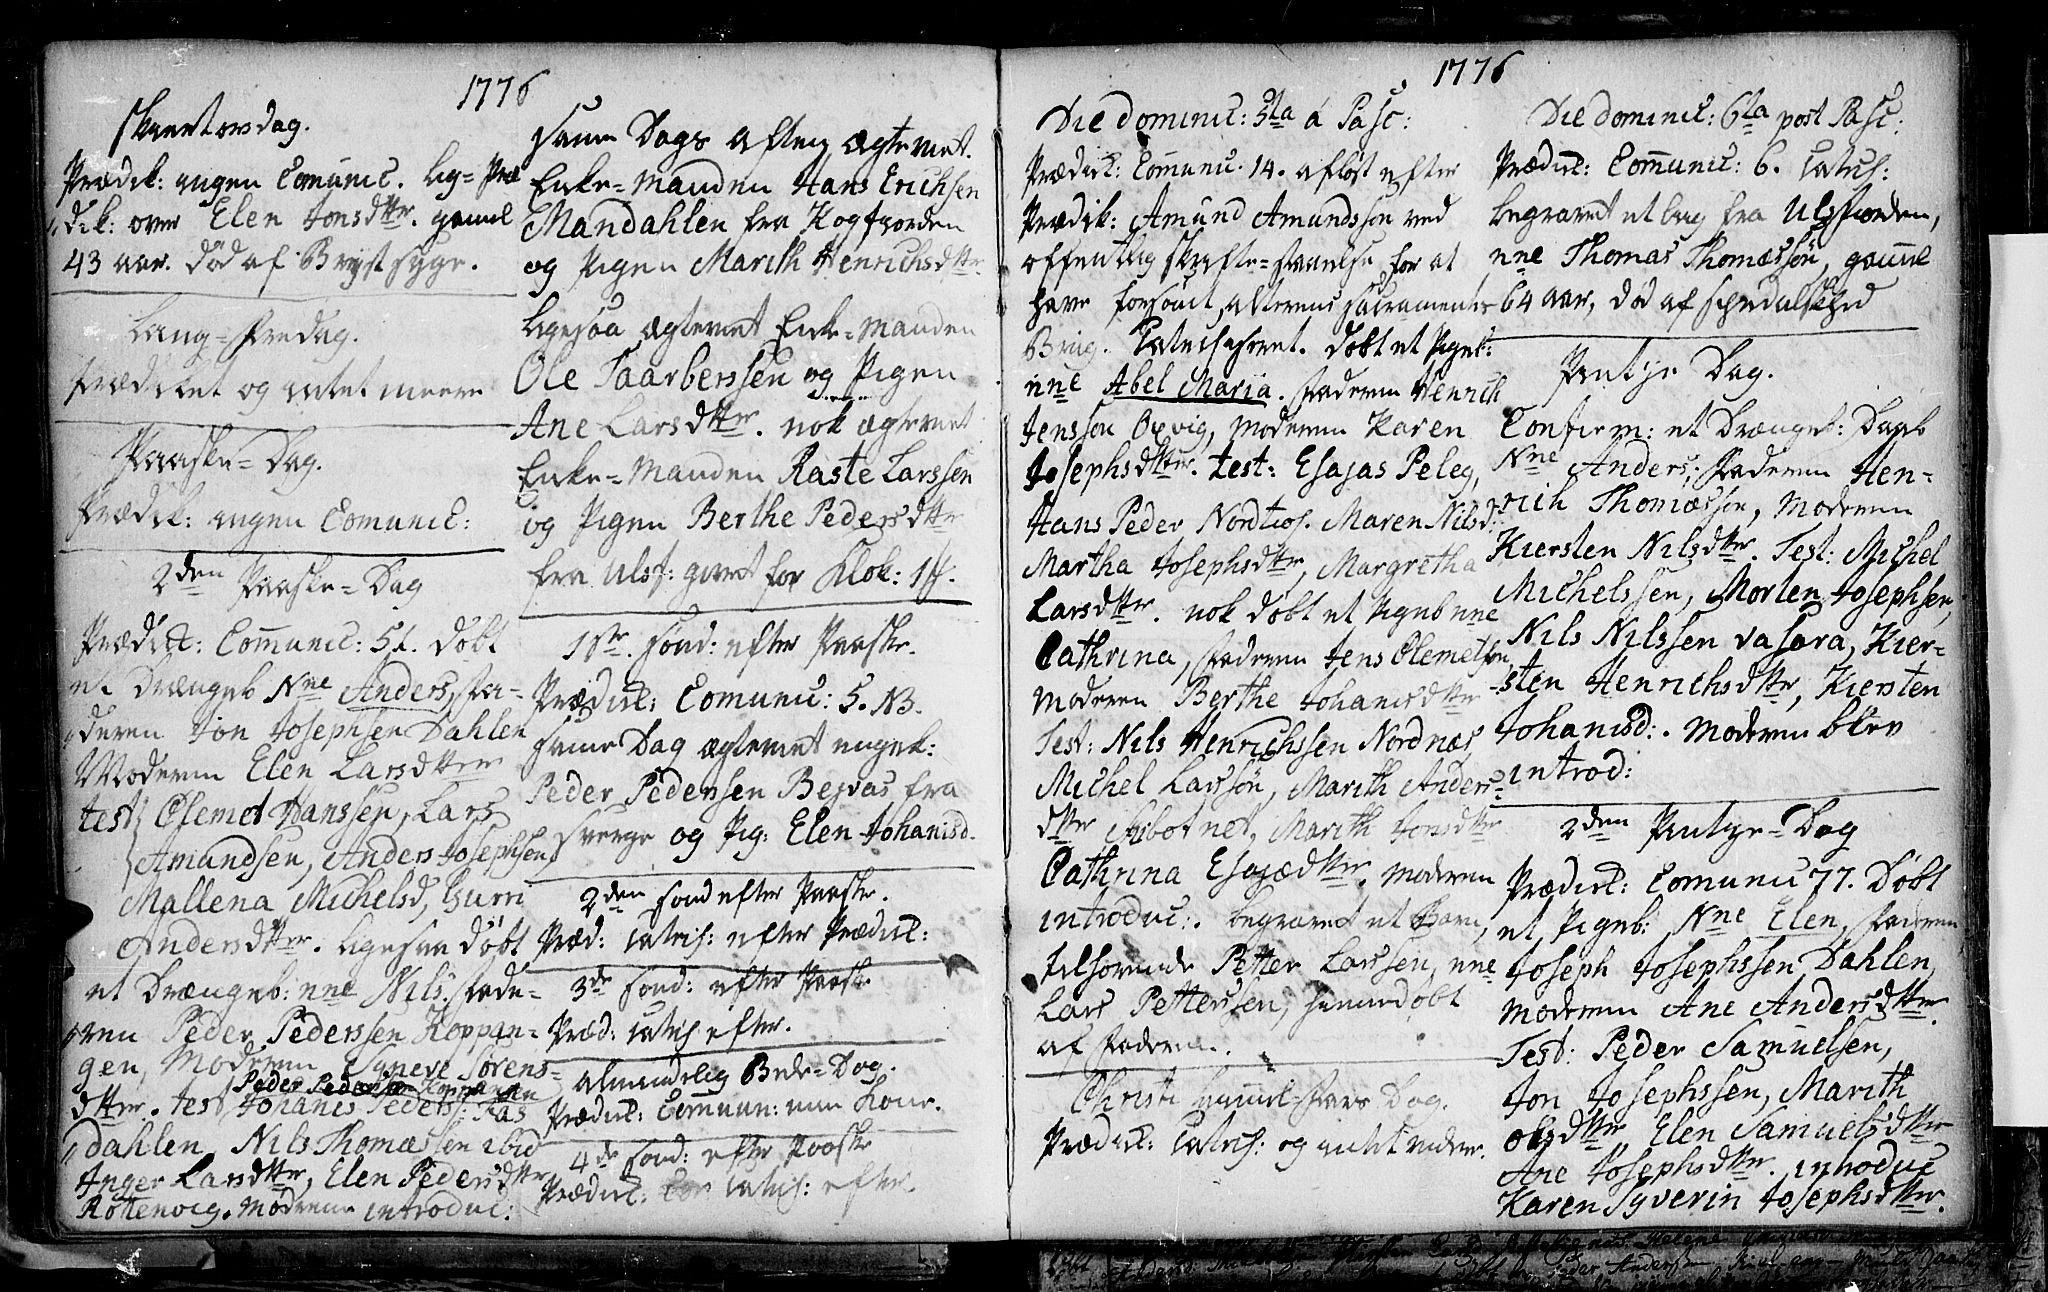 1776
Skiertorsdag.
Prædik: ingen Comunic. Lig-Præ
dik: over Elen Jonsdttr. gamel
43 aar. død af Brystsyge.
Lang-Fredag.
Prædiket og intet meere
Paaske-Dag.
Prædik: ingen Comunic:
2den Paaske-Dag
Prædict: Comunic: 51. døbt
et Drængeb Nne Anders, Fa-
deren Jon Josephsen Dahlen
Moderen Elen Larsdttr
test: Olemet Hanssen, Lars
Amundsen, Anders Josephsen,
Mallena Michelsd, Gurri
Andersdttr. ligesaa døbt
et Drængeb: nne Nils. Fade-
ren Peder Pederssen Koppan-
gen, Moderen Syneve Sørens-
dttr. test Peder Pedersen Koppangen
Johanes Peders: Ras
dahlen, Nils Thomæssen ibid
Inger Larsdttr, Elen Pedersdttr
Rottenvig. Moderen introduc:
samme Dags aften ægteviet.
Enke-Manden Hans Erichsen
Mandahlen fra Kogfiorden
og Pigen Marith Henrichsdttr
ligesaa ægteviet Enke-Manden
Ole Taarberssen og Pigen
Ane Larsdttr. nok ægteviet
Enke-Manden Raste Larssen
og Pigen Berthe Pedersdttr
fra Ulsf: giæret for Klok:
1ste. Sønd: efter Paaske.
Prædict: Comunic: 5. NB.
samme Dag ægteviet ungek:
Peder Pedersen Bejvas fra
Sverge og Pig: Elen Johanisd.
2den Sønd efter Paaske.
Præd: catech: efter Prædict:
3de Sønd: efter Paaske
Præd: catech efter.
Almindelig Bede-Dag.
Prædict: Comunic: een Kone.
4de Sønd: efter Paaske
Prædict: catech: efter.
1776
Die Dominic: 5ta á Pasc:
Prædict: Comunic. 14. afløst efter
Prædik: Amund Amundssøn ved
offentlig skrifte-staaelse for at
have forsømt, alterens Sacramentes
Brug. Catechiseret. døbt et Pigeb:
nne Abel Maria. Faderen Henrich
Jenssøn Oxvig, Moderen Karen
Josephsdttr. test: Esajas Peleg,
Hans Peder Nordtros. Maren Nilsd:
Martha Josephsdttr, Margretha
Larsdttr. nok døbt et Pigeb nne
Cathrina, Faderen Jens Olemetsen,
Moderen Berthe Johanisdttr
Test: Nils Henrichssen Nordnæs
Michel Larssøn, Marith Anders-
dttr Aibotnet, Marith Jonsdttr
Cathrina Esajædttr. Moderen
introduc:. begravet et Barn,
tilhørende Petter Larssen, nne
Lars Petterssen, hiemedøbt
af Faderen.
Christi himmel-Farts Dag.
Prædict: Catech: og intet videre.
Die Dominic: 6ta post Pasc:
Prædict: Comunic: 6. catech:
begravet et liig fra Ulsfiorden,
nne Thomas Thomæssøn, gamel
64 aar, død af spedalskhed
Pintze Dag.
Confirm: et Drængeb: Daab
Nne Anders; Faderen Hen-
rich Thomæssøn, Moderen
Kiersten Nilsdttr. Test: Michel
Michelssen, Morten Josephsen,
Nils Nilssen Vasara, Kier-
sten Henrichsdttr, Kiersten
Johanisd:. Moderen blev
introd:
2den Pintze-Dag
Prædict: Comunic 77. Døbt
et Pigeb: Nne Elen, Faderen
Joseph Josephssen Dahlen,
Moderen Ane Andersdttr.
Test: Peder Samuelsen,
Jon Josephssen, Marith
Olsdttr, Elen Samuelsdttr
Ane Josephsdttr. introduc
Karen Syverin Josephsdttr.